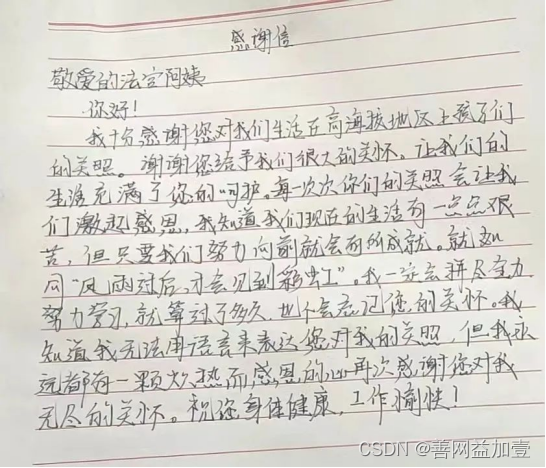 感谢信
敬爱的法官阿姨
你好！
我十分感谢您对我们生活在高海拔地区上孩子们
的关照。谢谢您给予我们很大的关怀，让我们的
生活充满了您的呵护。每一次次你们的关照会让我
们激起感恩，我知道我们现在的生活有一点点艰
苦，但只要我们努力向前就会有所成就。就如
同“风雨过后，才会见到彩虹”。我一定会拼尽全力
努力学习，就算过了多久，也不会忘记您的关怀。我
知道我无法用语言来表达您对我的关照，但我永
远都有一颗炽热而感恩的心再次感谢您对我
无尽的关怀。祝您身体健康，工作愉快！
CSDN @善网益加壹